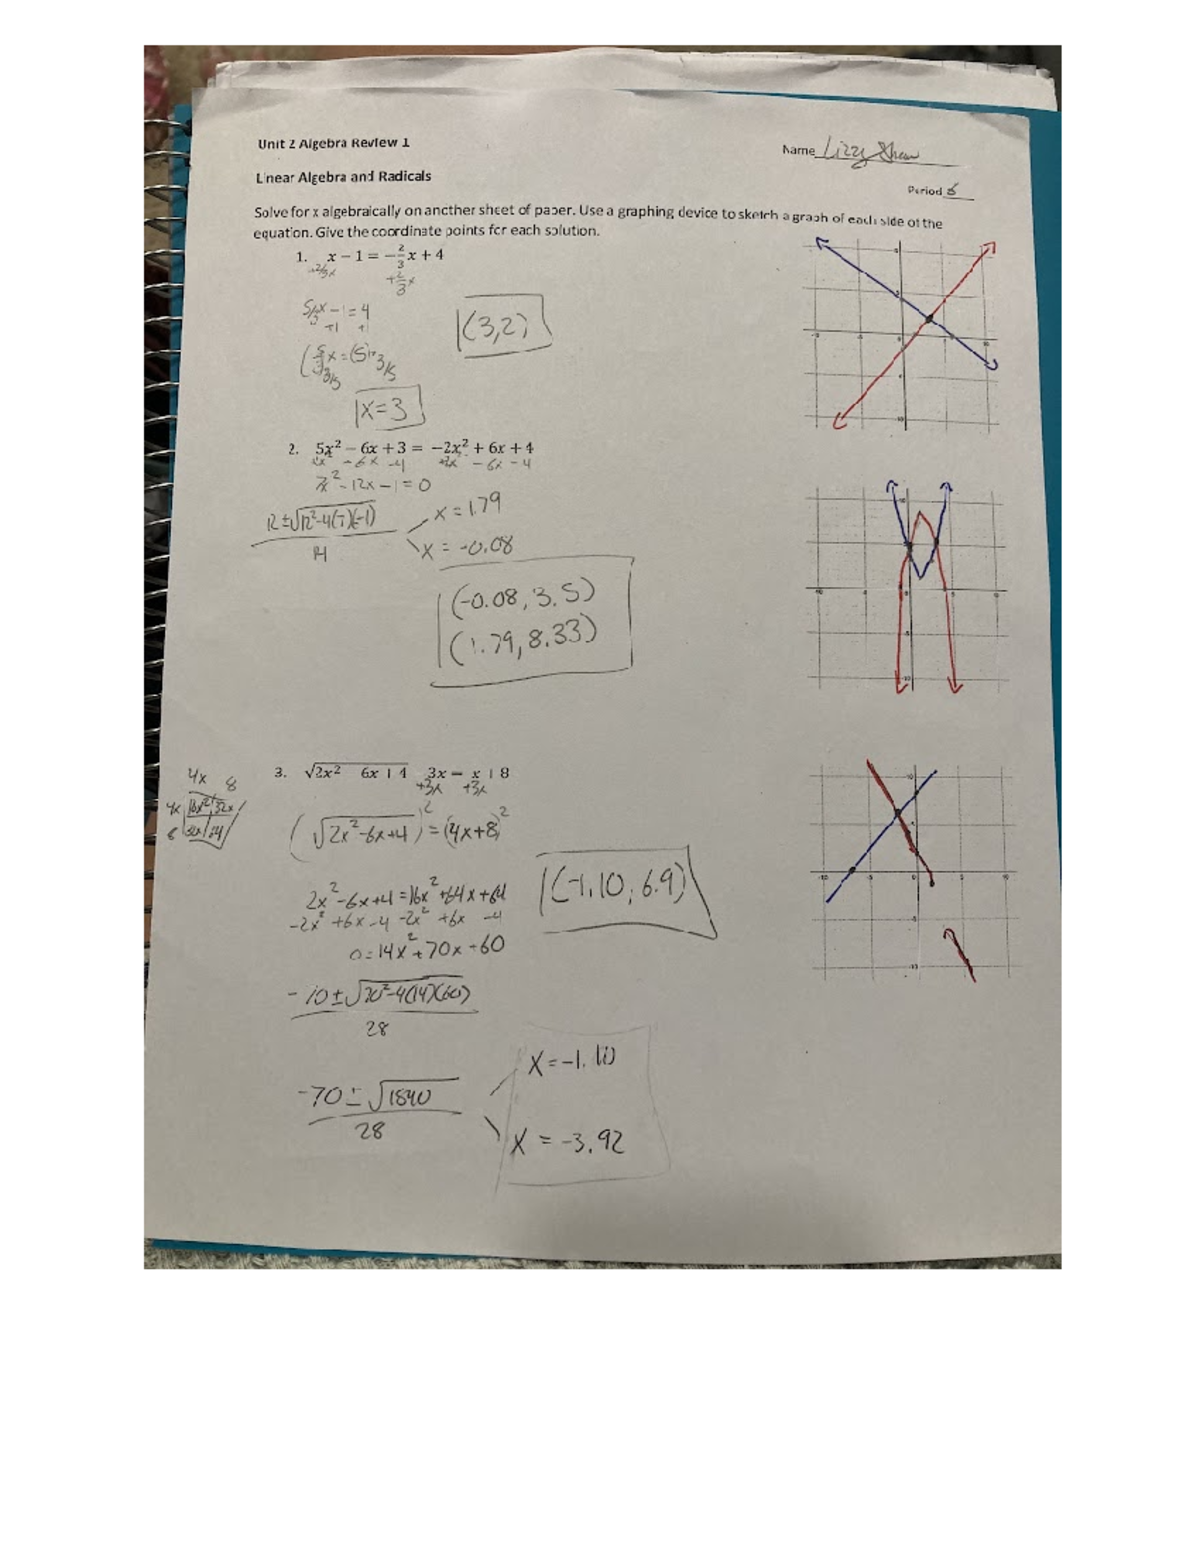 Unit 2 Algebra Review 1
Name Lizzy Shaw
Linear Algebra and Radicals
Period 6
Solve for x algebraically on another sheet of paper. Use a graphing device to sketch a graph of each side of the
equation. Give the coordinate points for each solution.
1. x − 1 = −2/3x + 4
+2/3x +2/3x
5/3x − 1 = 4
+1 +1
(3,2)
x=3
2. 5x² − 6x + 3 = −2x² + 6x + 4
+2x² − 6x − 4 +2x² − 6x − 4
7x² − 12x − 1 = 0
12 ± √12²−4(7)(−1)
14
x = 1.79
x = −0.08
(−0.08, 3.5)
(1.79, 8.33)
4x 8
4x 16x² 32x
8 32x 64
3. √2x² 6x + 4 3x = x + 8
+3x +3x
(√2x²−6x+4)² = (4x+8)²
2x²−6x+4 = 16x²+64x+64
−2x² +6x −4 −2x² +6x −4
0 = 14x² + 70x + 60
(−1.10, 6.9)
−70 ± √70²−4(14)(60)
28
−70 ± √1540
28
x = −1.10
x = −3.92